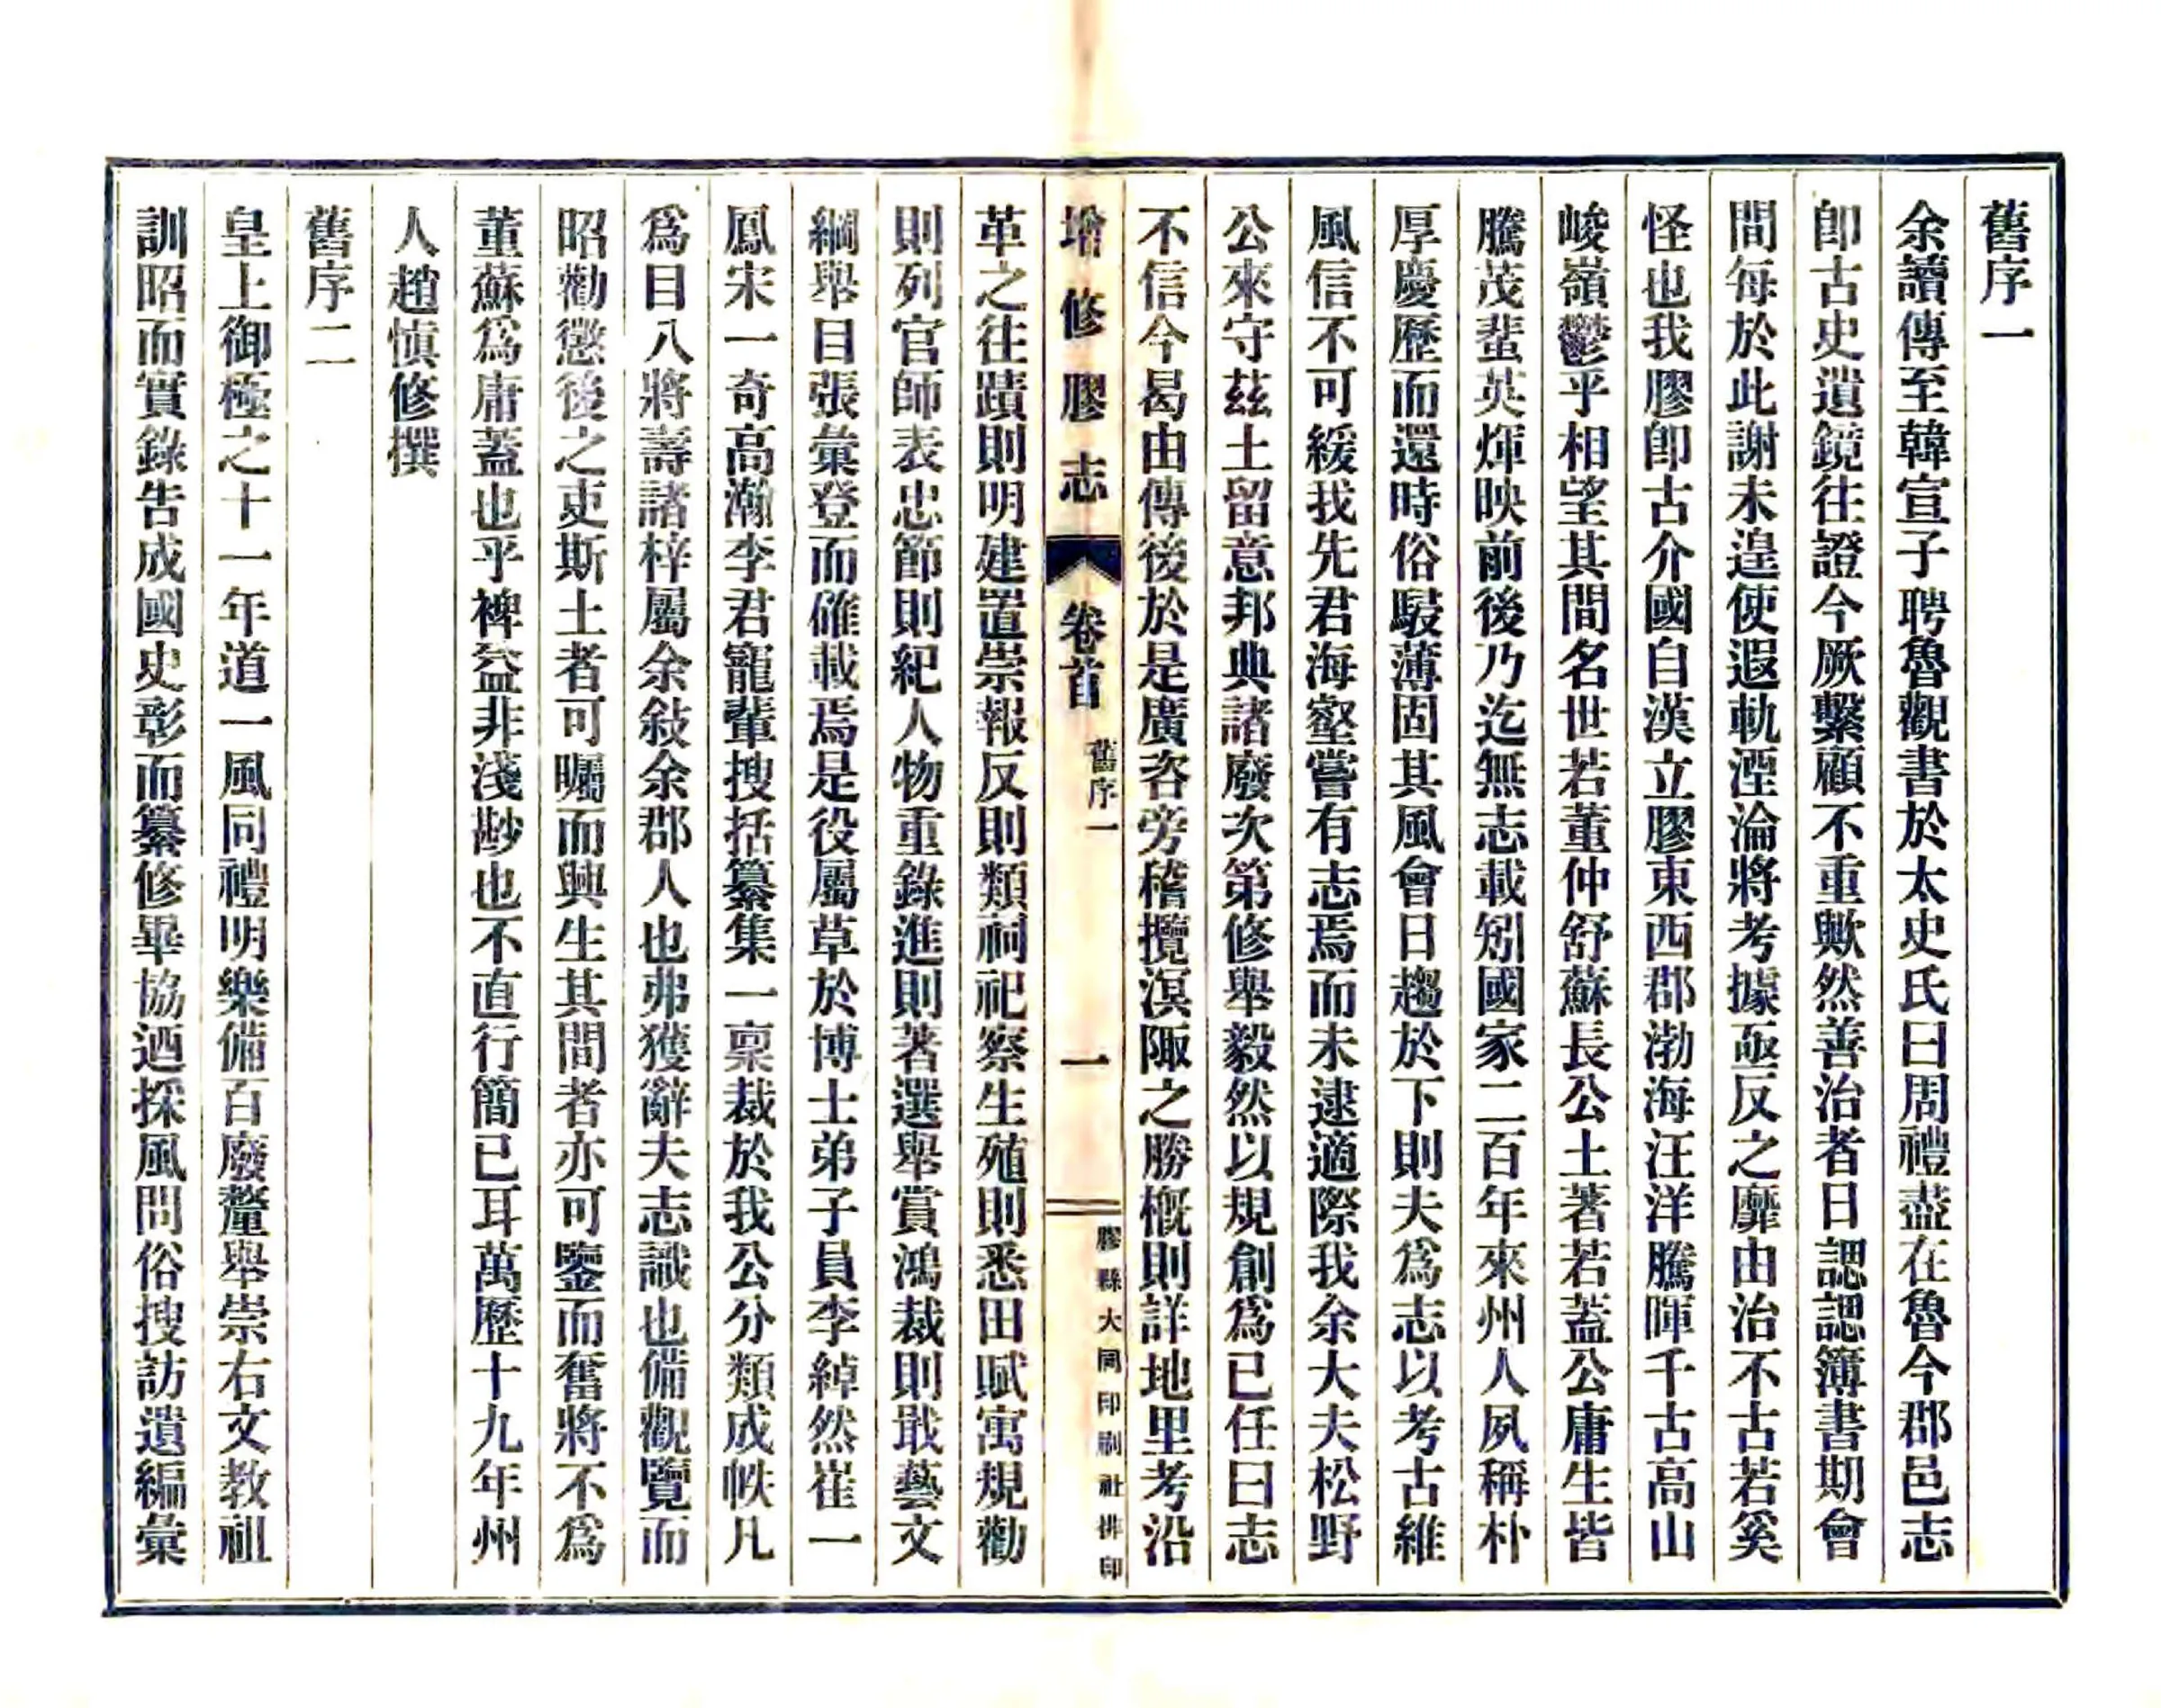 舊序一
余讀傳至韓宣子聘魯觀書於太史氏曰周禮盡在魯今郡邑志
卽古史遺鏡往證今厥繫顧不重歟然善治者日諰諰簿書期會
間每於此謝未遑使遐軌湮淪將考據亟反之靡由治不古若奚
怪也我膠卽古介國自漢立膠東西郡渤海汪洋騰暉千古高山
峻嶺鬱乎相望其間名世若董仲舒蘇長公土著若蓋公庸生皆
騰茂蜚英煇映前後乃迄無志載矧國家二百年來州人夙稱朴
厚慶歷而還時俗駸薄固其風會日趨於下則夫爲志以考古維
風信不可緩我先君海壑嘗有志焉而未逮適際我余大夫松野
公來守茲土留意邦典諸廢次第修舉毅然以規創爲已任曰志
不信今曷由傳後於是廣咨旁稽攬溟陬之勝槪則詳地里考沿
增修膠志 卷首 舊序一 一 膠縣大同印刷社排印
革之往蹟則明建置崇報反則類祠祀察生殖則悉田賦寓規勸
則列官師表忠節則紀人物重錄進則著選舉賞鴻裁則戢藝文
綱舉目張彙登而確載焉是役屬草於博士弟子員李綽然崔一
鳳宋一奇高瀚李君寵輩搜括纂集一稟裁於我公分類成帙凡
爲目八將壽諸梓屬余敍余郡人也弗獲辭夫志識也備觀覽而
昭勸懲後之吏斯土者可矚而興生其間者亦可鑒而奮將不爲
董蘇爲庸蓋也乎裨益非淺尠也不直行簡已耳萬歷十九年州
人趙愼修撰
舊序二
皇上御極之十一年道一風同禮明樂備百廢釐舉崇右文教祖
訓昭而實錄告成國史彰而纂修畢協迺採風問俗搜訪遺編彙